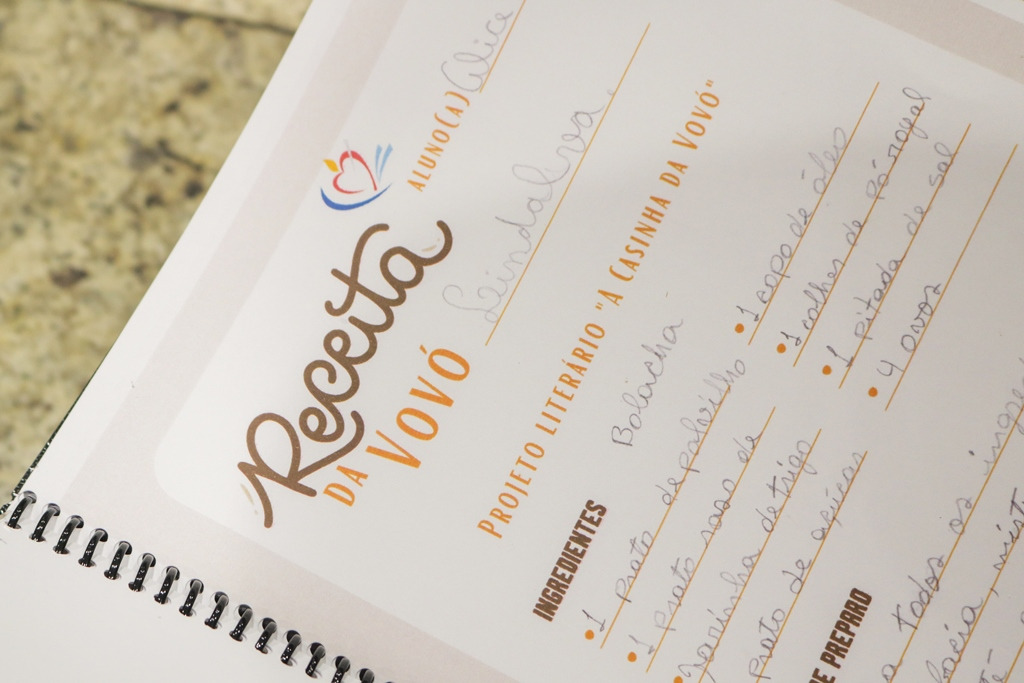 Receita
da Vovó
Aluno(a) Alice
Leindalva.
Projeto Literário "A Casinha da Vovó"
Bolaicha
Ingredientes
1 prato de polvilho
1 prato raso de
farinha de trigo
prato de açúcar
1 copo de óleo
1 colher de pó royal
1 pitada de sal
4 ovos
e Preparo
todos os